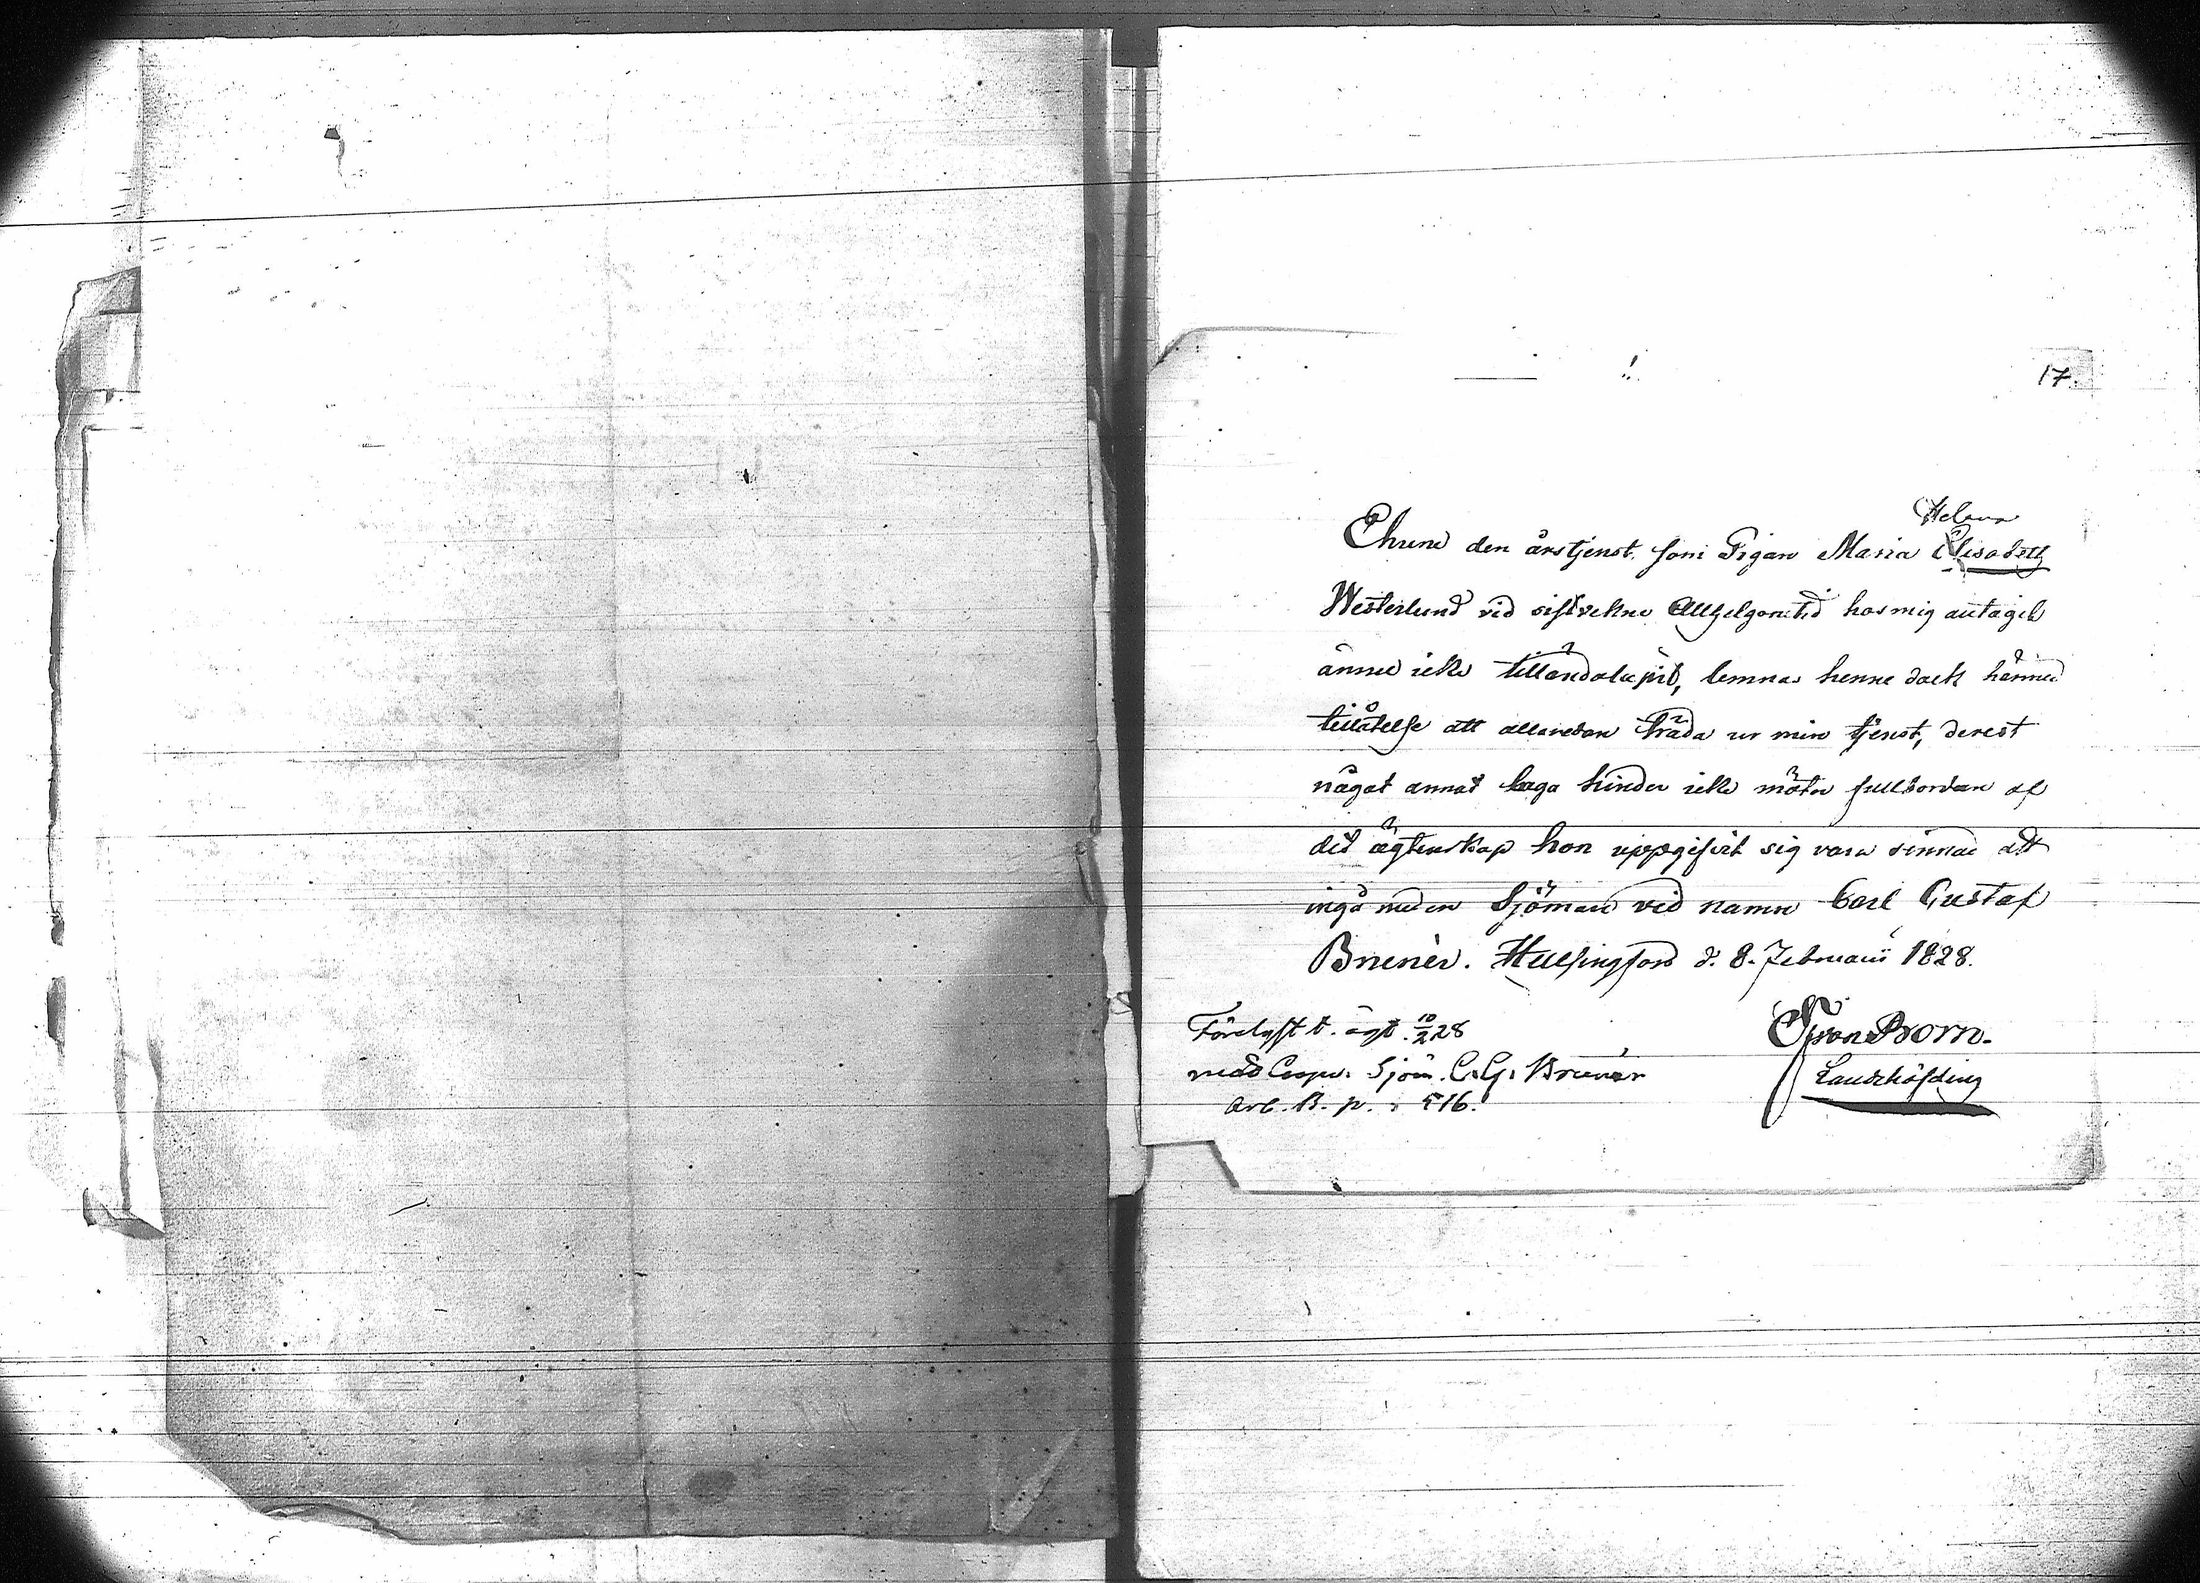 17.
Helena
Ehuru den årstjenst, som Pigan Maria Elisabeth
Westerlund vid sistvekne Allhelgonetid hos mig antagit
ännu icke tilländalupit, lemnas henne dock härmed
tillåtelse att allaredan träda ur min tjenst, derest
något annat laga hinder icke möter fullbordan af
det ägtenskap hon uppgifvit sig vara sinnad att
ingå med en Sjöman vid namn Carl Gustaf
Brunér. Helsingfors d. 8. Februarii 1828.
G von Born.
Landshöfding
Förelyst t. ägt. 10/2 28
med Coopv. Sjöm. C. G. Brunér
Arb. B. p. 516.